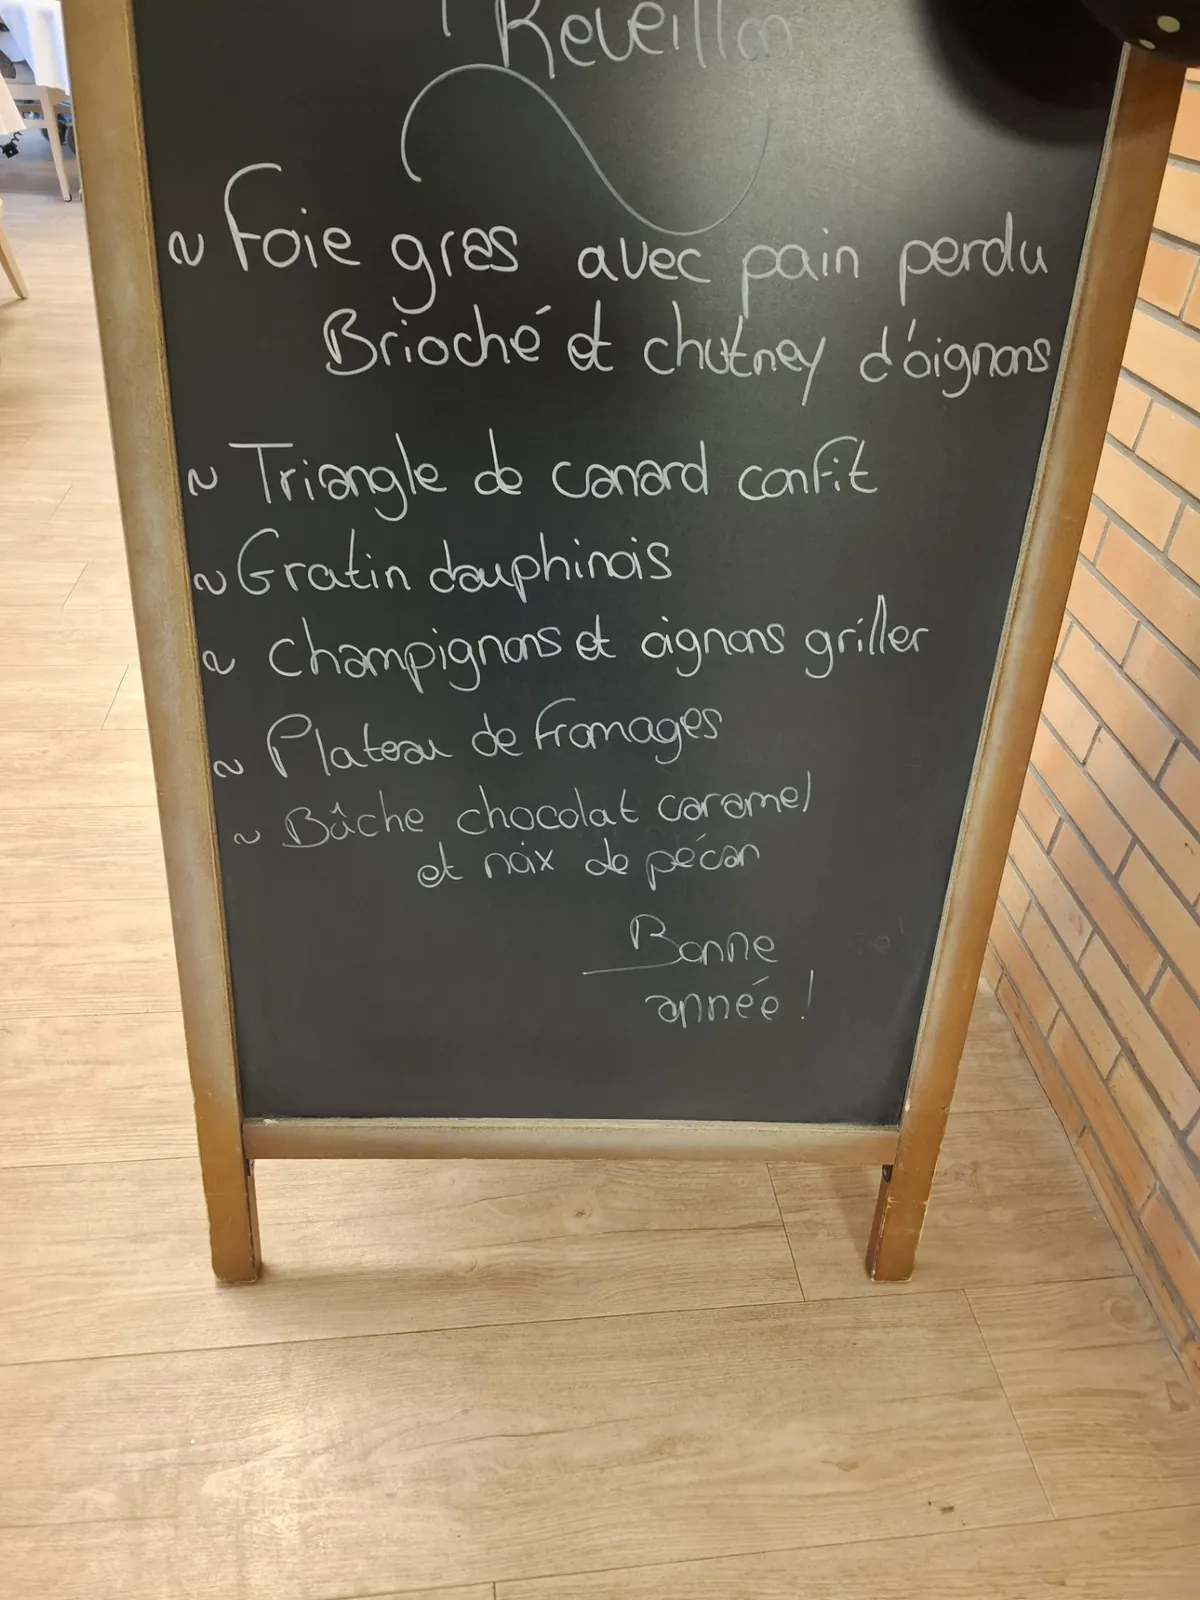 Réveillon
~ Foie gras avec pain perdu
Brioché et chutney d'oignons
~ Triangle de canard confit
~ Gratin dauphinois
~ Champignons et oignons griller
~ Plateau de fromages
~ Bûche chocolat caramel
et noix de pécan
Bonne
année !